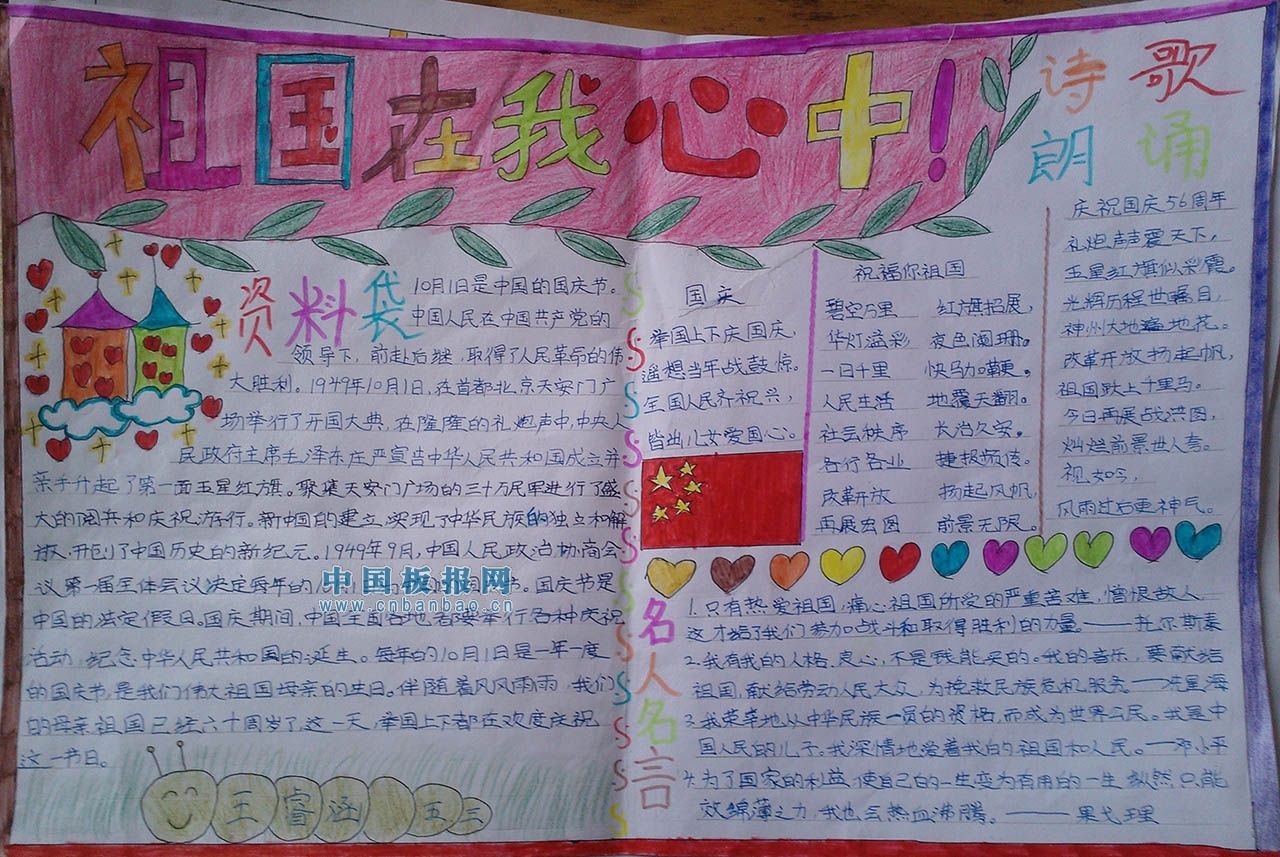 祖国在我心中！
诗歌
朗诵
资料袋
10月1日是中国的国庆节。
中国人民在中国共产党的
领导下，前赴后继，取得了人民革命的伟
大胜利。1949年10月1日，在首都北京天安门广
场举行了开国大典，在隆隆的礼炮声中，中央人
民政府主席毛泽东庄严宣告中华人民共和国成立并
亲手升起了第一面五星红旗。聚集天安门广场的三十万民军进行了盛
大的阅兵和庆祝游行。新中国的建立，实现了中华民族的独立和解
放，开创了中国历史的新纪元。1949年9月，中国人民政治协商会
议第一届全体会议决定每年的10月 国庆节。国庆节是
中国的法定假日。国庆期间，中国全国各地，都要举行各种庆祝
活动，纪念中华人民共和国的诞生。每年的10月1日是一年一度
的国庆节，是我们伟大祖国母亲的生日。伴随着风风雨雨，我们
的母亲祖国已经六十周岁了，这一天，举国上下都在欢度庆祝
这一节日。
中国板报网
www.cnbanbao.cn
王睿涵 五三
国庆
举国上下庆国庆，
遥想当年战鼓惊。
全国人民齐祝兴，
皆出儿女爱国心。
祝福你祖国
碧空万里 红旗招展，
华灯溢彩 夜色阑珊。
一日千里 快马加鞭。
人民生活 地震天翻。
社会秩序 长治久安。
各行各业 捷报频传。
改革开放 扬起风帆，
再展宏图 前景无限。
庆祝国庆56周年
礼炮声声震天下，
五星红旗似彩霞。
光辉历程世瞩目，
神州大地遍地花。
改革开放扬起帆，
祖国跃上千里马。
今日再展战洪图，
灿烂前景世人夸。
祝如今，
风雨过后更神气。
名人名言
1.只有热爱祖国，痛心祖国所受的严重苦难，憎恨敌人
这才给了我们参加战斗和取得胜利的力量。——托尔斯泰
2.我有我的人格、良心，不是钱能买的。我的音乐，要献给
祖国，献给劳动人民大众，为挽救民族危机服务。——冼星海
3.我荣幸地从中华民族一员的资格，而成为世界公民。我是中
国人民的儿子。我深情地爱着我的祖国和人民。——邓小平
4.为了国家的利益，使自己的一生变为有用的一生，纵然只能
效绵薄之力，我也会热血沸腾。——果戈理